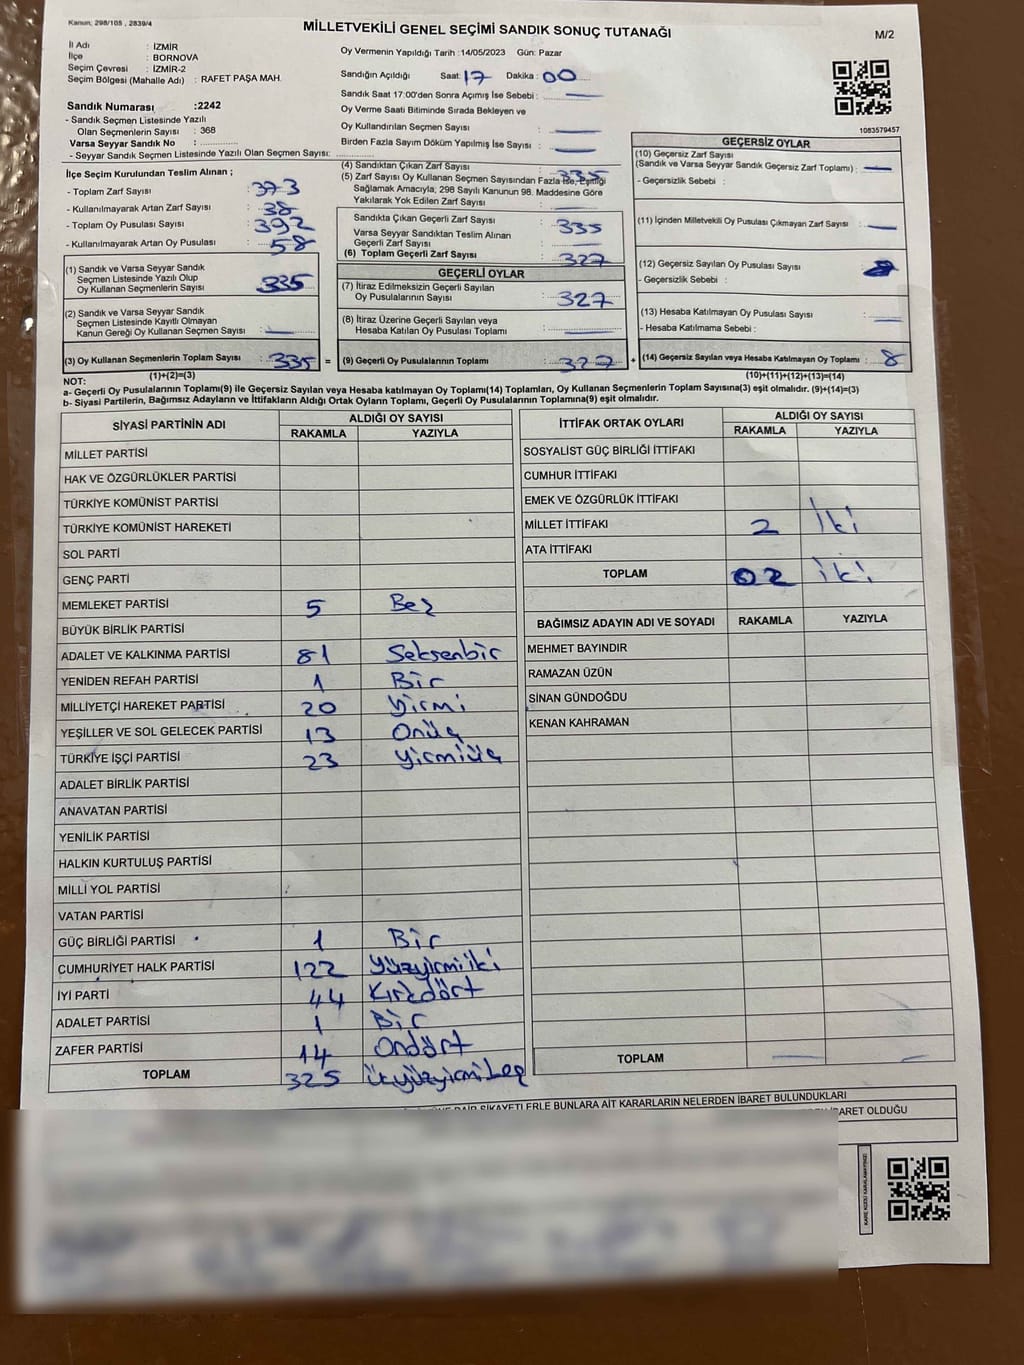 Kanun; 298/105 , 2839/4
MİLLETVEKİLİ GENEL SEÇİMİ SANDIK SONUÇ TUTANAĞI
M/2
İl Adı : İZMİR
İlçe : BORNOVA
Seçim Çevresi : İZMİR-2
Seçim Bölgesi (Mahalle Adı) : RAFET PAŞA MAH.
Sandık Numarası :2242
- Sandık Seçmen Listesinde Yazılı
Olan Seçmenlerin Sayısı : 368
Varsa Seyyar Sandık No :
- Seyyar Sandık Seçmen Listesinde Yazılı Olan Seçmen Sayısı:
İlçe Seçim Kurulundan Teslim Alınan ;
- Toplam Zarf Sayısı : 373
- Kullanılmayarak Artan Zarf Sayısı : 38
- Toplam Oy Pusulası Sayısı : 392
- Kullanılmayarak Artan Oy Pusulası : 58
(1) Sandık ve Varsa Seyyar Sandık
Seçmen Listesinde Yazılı Olup
Oy Kullanan Seçmenlerin Sayısı : 335
(2) Sandık ve Varsa Seyyar Sandık
Seçmen Listesinde Kayıtlı Olmayan
Kanun Gereği Oy Kullanan Seçmen Sayısı : —
(3) Oy Kullanan Seçmenlerin Toplam Sayısı : 335 =
(1)+(2)=(3)
Oy Vermenin Yapıldığı Tarih :14/05/2023 Gün: Pazar
Sandığın Açıldığı Saat: 17 Dakika : 00
Sandık Saat 17:00'den Sonra Açımış İse Sebebi : —
Oy Verme Saati Bitiminde Sırada Bekleyen ve
Oy Kullandırılan Seçmen Sayısı : —
Birden Fazla Sayım Döküm Yapılmış İse Sayısı : —
(4) Sandıktan Çıkan Zarf Sayısı : 335
(5) Zarf Sayısı Oy Kullanan Seçmen Sayısından Fazla İse, Eşitliği
Sağlamak Amacıyla; 298 Sayılı Kanunun 98. Maddesine Göre
Yakılarak Yok Edilen Zarf Sayısı : —
Sandıkta Çıkan Geçerli Zarf Sayısı : 335
Varsa Seyyar Sandıktan Teslim Alınan
Geçerli Zarf Sayısı : —
(6) Toplam Geçerli Zarf Sayısı : 327
GEÇERLİ OYLAR
(7) İtiraz Edilmeksizin Geçerli Sayılan
Oy Pusulalarının Sayısı : 327
(8) İtiraz Üzerine Geçerli Sayılan veya
Hesaba Katılan Oy Pusulası Toplamı : —
(9) Geçerli Oy Pusulalarının Toplamı : 327 +
1083579457
GEÇERSİZ OYLAR
(10) Geçersiz Zarf Sayısı
(Sandık ve Varsa Seyyar Sandık Geçersiz Zarf Toplamı) : —
- Geçersizlik Sebebi :
(11) İçinden Milletvekili Oy Pusulası Çıkmayan Zarf Sayısı : —
(12) Geçersiz Sayılan Oy Pusulası Sayısı :
- Geçersizlik Sebebi :
(13) Hesaba Katılmayan Oy Pusulası Sayısı : —
- Hesaba Katılmama Sebebi :
(14) Geçersiz Sayılan veya Hesaba Katılmayan Oy Toplamı : 8
(10)+(11)+(12)+(13)=(14)
NOT:
a- Geçerli Oy Pusulalarının Toplamı(9) ile Geçersiz Sayılan veya Hesaba katılmayan Oy Toplamı(14) Toplamları, Oy Kullanan Seçmenlerin Toplam Sayısına(3) eşit olmalıdır. (9)+(14)=(3)
b- Siyasi Partilerin, Bağımsız Adayların ve İttifakların Aldığı Ortak Oyların Toplamı, Geçerli Oy Pusulalarının Toplamına(9) eşit olmalıdır.
SİYASİ PARTİNİN ADI ALDIĞI OY SAYISI
RAKAMLA YAZIYLA
MİLLET PARTİSİ
HAK VE ÖZGÜRLÜKLER PARTİSİ
TÜRKİYE KOMÜNİST PARTİSİ
TÜRKİYE KOMÜNİST HAREKETİ
SOL PARTİ
GENÇ PARTİ
MEMLEKET PARTİSİ 5 Beş
BÜYÜK BİRLİK PARTİSİ
ADALET VE KALKINMA PARTİSİ 81 Seksenbir
YENİDEN REFAH PARTİSİ 1 Bir
MİLLİYETÇİ HAREKET PARTİSİ 20 Yirmi
YEŞİLLER VE SOL GELECEK PARTİSİ 13 Onüç
TÜRKİYE İŞÇİ PARTİSİ 23 Yirmiüç
ADALET BİRLİK PARTİSİ
ANAVATAN PARTİSİ
YENİLİK PARTİSİ
HALKIN KURTULUŞ PARTİSİ
MİLLİ YOL PARTİSİ
VATAN PARTİSİ
GÜÇ BİRLİĞİ PARTİSİ 1 Bir
CUMHURİYET HALK PARTİSİ 122 Yüzyirmiiki
İYİ PARTİ 44 Kırkdört
ADALET PARTİSİ 1 Bir
ZAFER PARTİSİ 14 Ondört
TOPLAM 325 Üçyüzyirmibeş
İTTİFAK ORTAK OYLARI ALDIĞI OY SAYISI
RAKAMLA YAZIYLA
SOSYALİST GÜÇ BİRLİĞİ İTTİFAKI
CUMHUR İTTİFAKI
EMEK VE ÖZGÜRLÜK İTTİFAKI
MİLLET İTTİFAKI 2 İki
ATA İTTİFAKI
TOPLAM 02 İki
BAĞIMSIZ ADAYIN ADI VE SOYADI RAKAMLA YAZIYLA
MEHMET BAYINDIR
RAMAZAN ÜZÜN
SİNAN GÜNDOĞDU
KENAN KAHRAMAN
TOPLAM — —
ŞİKAYETLERLE BUNLARA AİT KARARLARIN NELERDEN İBARET BULUNDUKLARI
İBARET OLDUĞU
KARE KODU KARALAMAYINIZ!